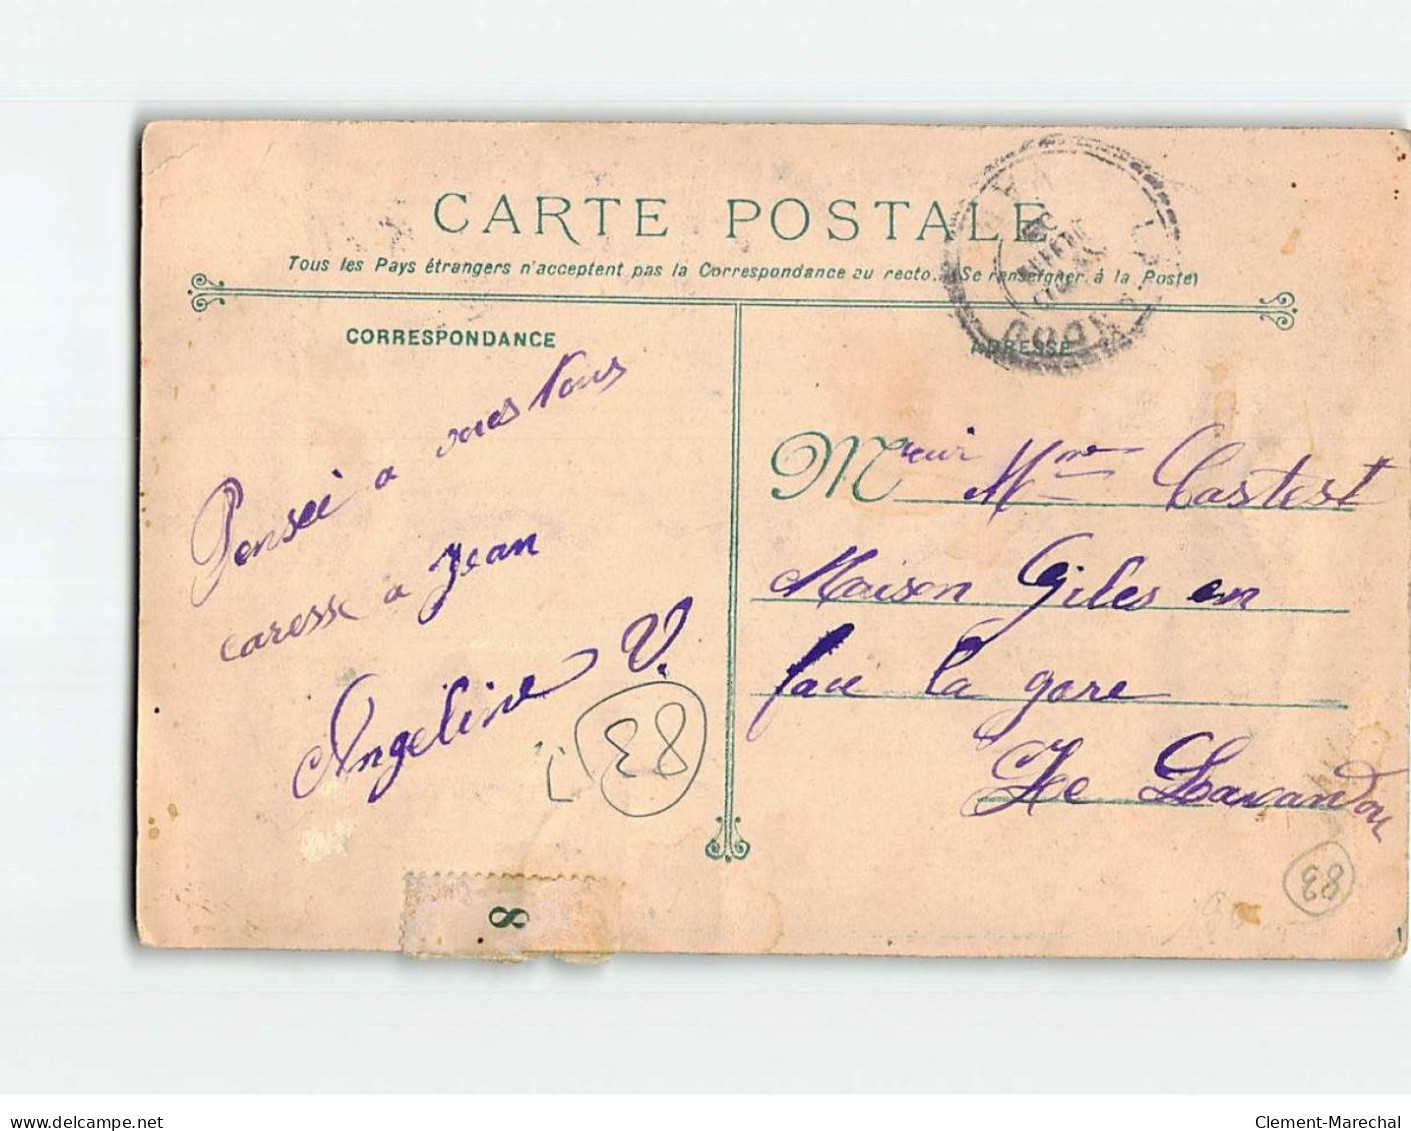 CARTE POSTALE
Tous les Pays étrangers n'acceptent pas la Correspondance au recto. (Se renseigner à la Poste)
CORRESPONDANCE
ADRESSE
Pensée a vous tous
caresse a Jean
Angeline V.
83
Mr Mme Castest
Maison Giles en
face la gare
Le Lavandou
83
8
delcampe.net
Clement-Marechal